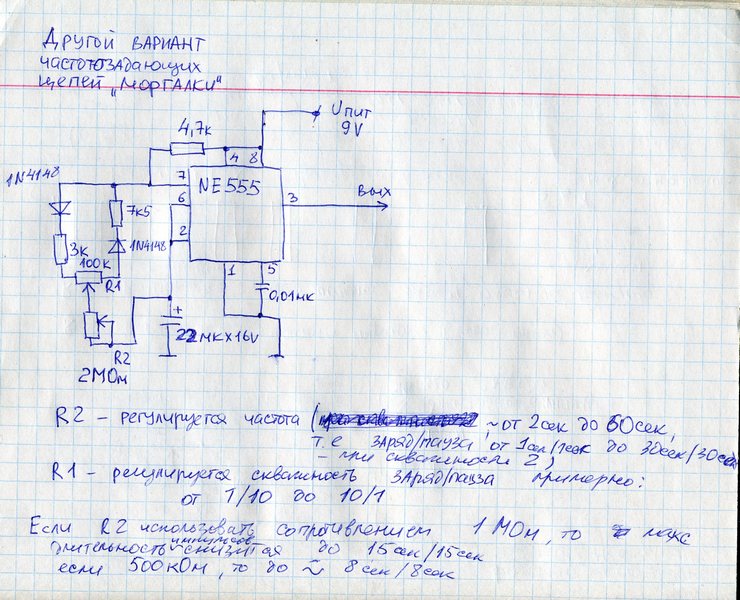 Другой вариант
частотозадающих
цепей „Моргалки"
Uпит
9V
4,7к
4
8
1N4148
7
NE555
6
3
вых
7к5
2
1N4148
3к
100к
R1
1
5
0,01мк
+
22мкх16V
R2
2МОм
R2 – регулируется частота ( ~ от 2сек до 60сек,
т.е заряд/пауза, от 1сек/1сек до 30сек/30сек
– при скважности 2)
R1 – регулируется скважность заряд/пауза примерно:
от 1/10 до 10/1
Если R2 использовать сопротивлением 1МОм, то макс
длительность импульсов снизится до 15сек/15сек
если 500кОм, то до ≈ 8сек/8сек